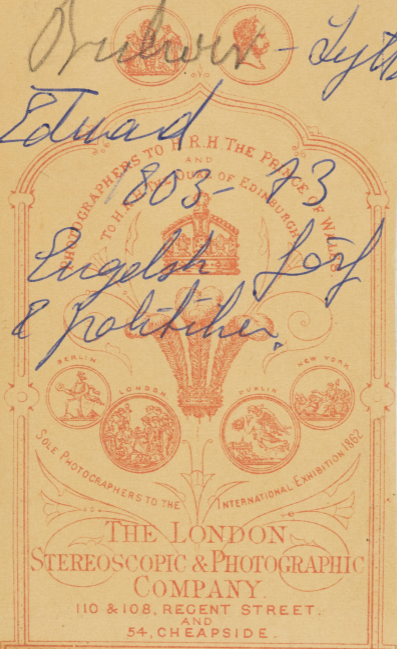 Bulwer - Lytt
Edward
1803-73
Engelsk förf
& politiker.
PHOTOGRAPHERS TO H.R.H THE PRINCE OF WALES.
AND
TO H.R.H THE DUKE OF EDINBURGH
BERLIN
LONDON
DUBLIN
NEW YORK
SOLE PHOTOGRAPHERS TO THE INTERNATIONAL EXHIBITION 1862
THE LONDON
STEREOSCOPIC & PHOTOGRAPHIC
COMPANY.
110 & 108, REGENT STREET.
AND
54, CHEAPSIDE.